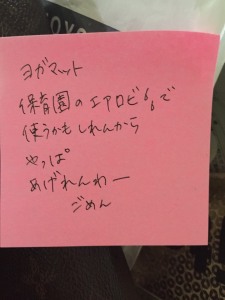 ヨガマット
保育園のエアロビ%で
使うかもしれんから
やっぱ
あげれんわー
ごめん